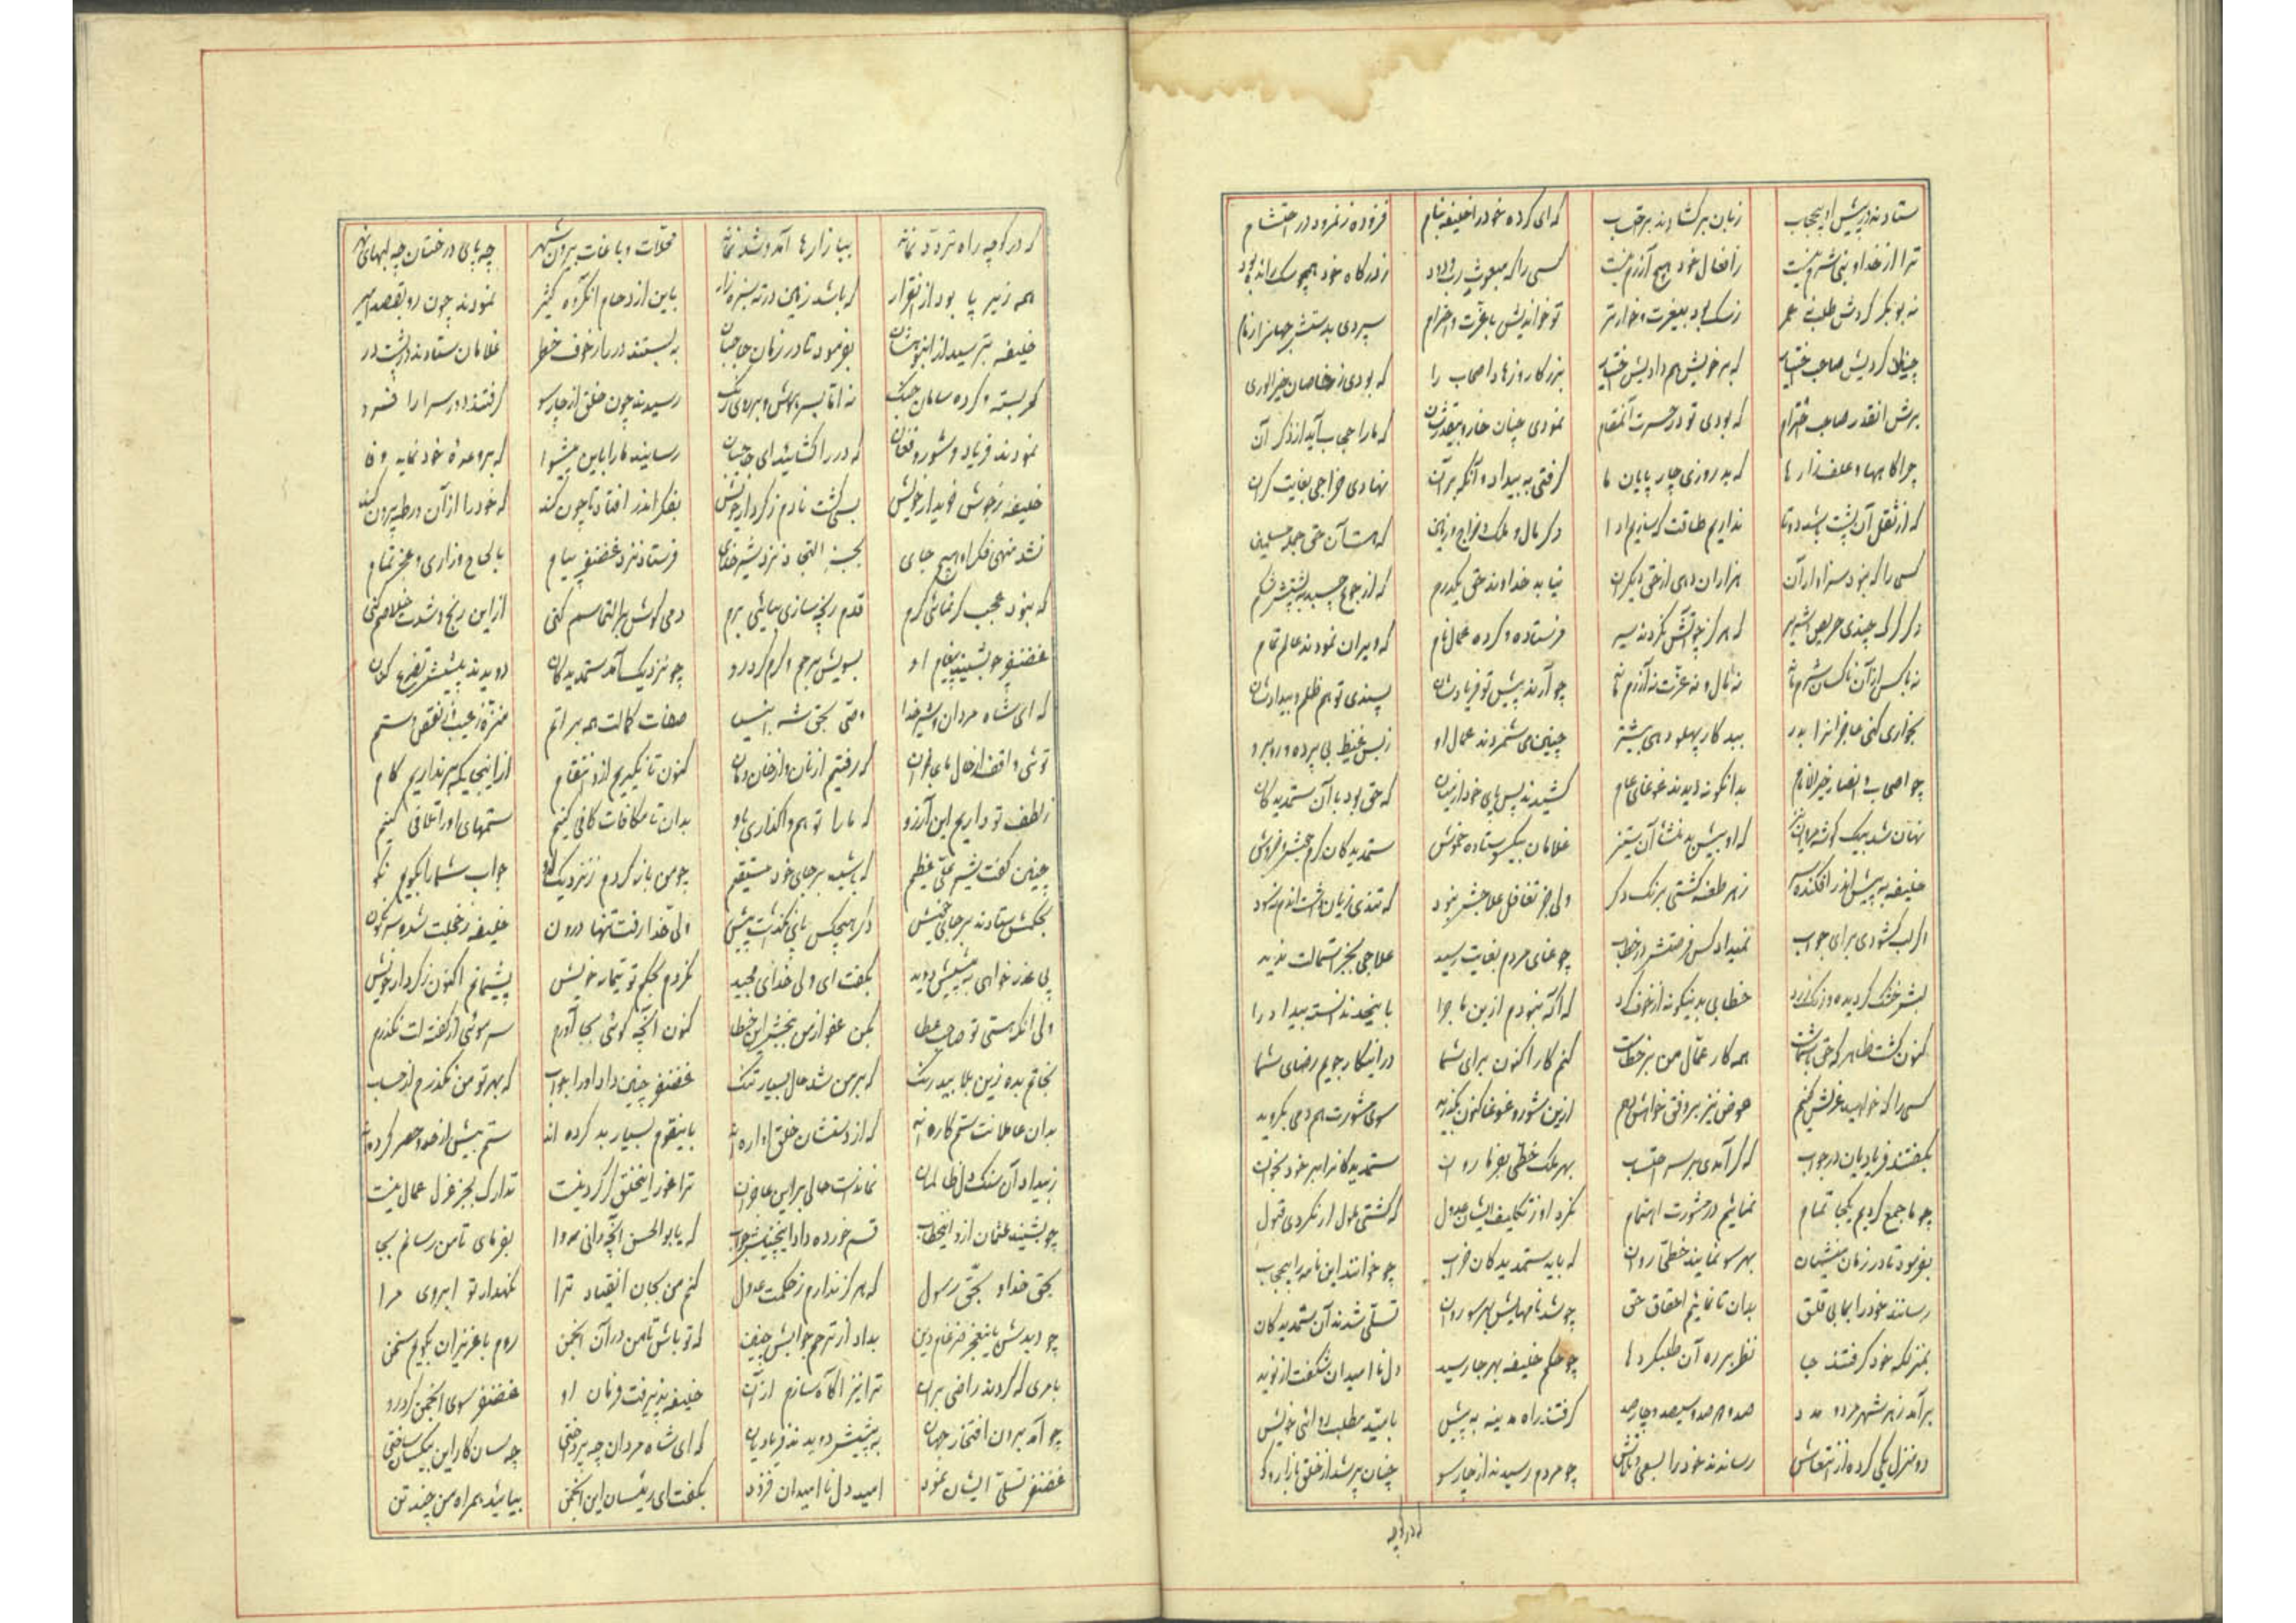 ستادند در پیش او بیحجاب زبان برکشادند بر احتساب که ای کرده خود را خلیفه بنام فزوده ز نمرود در احتشام
ترا از خدا و نبی شرم نیست ز افعال خود هیچ آزرم نیست کسی را که مبعوث رب ودود ز درگاه خود همچو سک رانده بود
نه بوبکر کردش طلب نی عمر ز سک بود بیغیرت و خوارتر تو خواندیش با عزت و احترام سپردی بدستش جهانرا زمام
چنین کردیش صاحب اختیار که بر خویش هم دادیش اختیار بزرکان و زهاد اصحاب را که بودی ز خاصان خیرالوری
برش انقدر صاحب احترام که بودی تو در حسرت آنمقام نمودی چنان خار و بیقدرشان که ما را حجاب آید از ذکر آن
چراکاهها و علفزارها که بد روزی چارپایان ما کرفتی به بیداد و آنکه بر آن نهادی خراجی بغایت کران
که از ثقل آن پشت شد دوتا نداریم طاقت که سازیم ادا دکر مال و ملک و خراج زمین که هست آن حق جمله مسلمین
کسی را که نبود سزاوار آن هزاران دهی از حق دیکران نیابد خداوند حق یکدرم که از جوع چسبد به پشتش شکم
دکر کرک چندی حریص شریر که هرکز ز خواهش نکردند سیر فرستاده و کرده عمال نام که ویران نمودند عالم تمام
نه با کس از آن ناکسان شرم ماند نه مال و نه عزت نه آزرم ماند چو آرند پیش تو فریادشان پسندی تو هم ظلم و بیدادشان
بخواری کنی عاجزانرا بدر بید کار پهلو دهی بیشتر چنین می شمردند عمال او ز بس غیظ بی پرده و روبرو
چو اصحاب و انصار خیرالانام بدانکونه دیدند غوغای عام کشیدند پس پای خود از میان که حق بود با آن ستمدیدکان
نهان شد بیک کوشه مروان که او پیش بد منشأ آن ستیز غلامان بیکسو ستاده خموش ستمدیدکان کرم جوش و خروش
خلیفه به پیش اندر افکنده سر ز هر طعنه کشتی برنک دکر ولی جز تغافل علاجش نبود که تندی زیان داشت اندم نه سود
اکر لب کشودی برای جواب نمیداد کس فرصتش در خطاب چو غوغای مردم بغایت رسید علاجی بجز استمالت ندید
لبش خشک کردیده و رنک زرد خطابی بدینکونه از خوف کرد که آکه نبودم ازین ماجرا باینحد ندانسته بیداد را
کنون کشت ظاهر که حق با شماست همه کار عمال من بر خطاست کنم کار اکنون برای شما در اینکار جویم رضای شما
کسی را که خواهید عزلش کنم عوض نیز بر وفق خواهش دهم ازین شور و غوغا کنون بکذرید سوی مشورت هم دمی بکروید
بکفتند فریادیان در جواب که کر آمدی بر سر احتساب بهر ملک خطی بفرما روان ستمدیدکانرا بر خود بخوان
چو ما جمع کردیم یکجا تمام نمائیم در مشورت اهتمام نکرد او ز تکلیف ایشان عدول که کشتی عول ار نکردی قبول
بفرمود تا در زمان منشیان بهر سو نمایند خطی روان که باید ستمدیدکان خراب چو خوانند این نامه را بیحجاب
رسانند خود را بما بی قلق بدان تا نمائیم احقاق حق چو شد نامهایش بهر سو روان تسلی شدند آن ستمدیدکان
بمنزلکه خود کرفتند جا نظر بر ره آن طلبکردها چو حکم خلیفه بهر جا رسید دل ناامیدان شکفت از نوید
برآمد ز هر شهر مردوم مدد صد و هرصد و سیصد و چارصد کرفتند راه مدینه به پیش بامید مطلب روائی خویش
دو منزل یکی کرده از انتعاش رساندند خود را بسعی و تلاش چو مردم رسیدند از چارسو چنان پر شد از خلق بازار و کو
که در کوچه
که در کوچه راه تردد نماند ببازارها آمد و شد نماند محلات و باغات بیرون شهر چه پای درختان چه لبهای نهر
همه زیر پا بود از انقرار که باشد زمین در ته سبزه‌زار باین ازدحام انکروه کثیر نمودند چون رو بقصد امیر
خلیفه بترسید از انبوهشان بفرمود تا در زمان حاجبان به بستند در باز خوف خطر غلامان ستادند در پشت در
کمر بسته و کرده سامان جنک نه اما بسر هوش و بر روی رنک رسیدند چون خلق از چارسو کرفتند دور سرا را فرو
نمودند فریاد و شور و فغان که در را کشائید ای حاجبان رسانید ما را باین پیشوا که بر وعده خود نماید وفا
خلیفه ز جوش فویدار خویش بسی کشت نادم ز کردار خویش بفکر اندر افتاد تا چون کند که خود را از آن ورطه بیرون کند
نشد منهی فکر او هیچ جای بجز التجا نزد شیر خدای فرستاد نزد غضنفر پیام بالحاح و زاری و عجز تمام
که نبود عجب کر نمائی کرم قدم رنجه سازی بیائی برم دمی کوش بر التماسم کنی ازین رنج و شدت خلاصم کنی
غضنفر چو بشنید پیغام او بسویش برحم و کرم کرد رو چو نزدیک آمد ستمدیدکان دویدند پیشش تضرع کنان
که ای شاه مردان و شیر خدا وصی بحق شه انبیا صفات کمالت همه بر اتم منزه ز عیب و ز نقص و ستم
توئی واقف از حال ما عاجزان که رفتیم از نان و از خان و مان کنون تا نکیریم ازو انتقام ازاینجایکه بر نداریم کام
ز لطف تو داریم این آرزو که ما را تو هم واکذاری باو بدان تا مکافات کافی کنیم ستمهای او را تلافی کنیم
چنین کفت شیر علی عظیم که باشید بر جای خود مستقیم چو من باز کردم ز نزدیک او جواب شما را بکویم نکو
بحکمش ستادند بر جای خویش دکر هیچکس پای نکذاشت پیش ولی خدا رفت تنها درون خلیفه ز خجلت شده سرنکون
پی عذرخواهی به پیشش دوید بکفت ای ولی خدای مجید نکردم بحکم تو تیمار خویش پشیمانم اکنون ز کردار خویش
ولی انکه هستی تو صاحب عطا بکن عفو از من ببخش این خطا کنون آنچه کوئی بجا آورم سر موئی از کفته ات نکذرم
نجاتم بده زین بلا بیدرنک که بر من شده حال بسیار تنک غضنفر چنین داد او را جواب که بهر تو من نکذرم از حساب
بدان عاملانت ستم کاره اند که از دستشان خلق آواره اند باینقوم بسیار بد کرده اند ستم بیش از حد و حصر کرده اند
ز بیداد آن سنک دل ظالمان نماندست حالی بر این عاجزان ترا غور اینخلق کر کردنیست تدارک بجز عزل عمال نیست
چو بشنید عثمان ازو اینخطاب قسم خورده داد اینچنینش جواب که یا بوالحسن آنچه دانی روا بفرمای تا من رسانم بجا
بحق خدا و بحق رسول که هرکز ندارم ز حکمت عدول کنم من بجان انقیاد ترا نکهدار تو ابروی مرا
چو دیدش باینعجز ضرغام دین بداد از ترحم جوابش چنین که تو باش تا من در آن انجمن روم با عزیزان بکویم سخن
بامری که کردند راضی بران ترا نیز آکاه سازم از آن خلیفه پذیرفت فرمان او غضنفر سوی انجمن کرد رو
چو آمد برون افتخار جهان به پیشش دویدند فریادیان که ای شاه مردان چه پرداختی چه سان کار این بیکسان ساختی
غضنفر تسلی ایشان نمود امید دل ناامیدان فزود بکفت ای رئیسان این انجمن بیائید همراه من چند تن